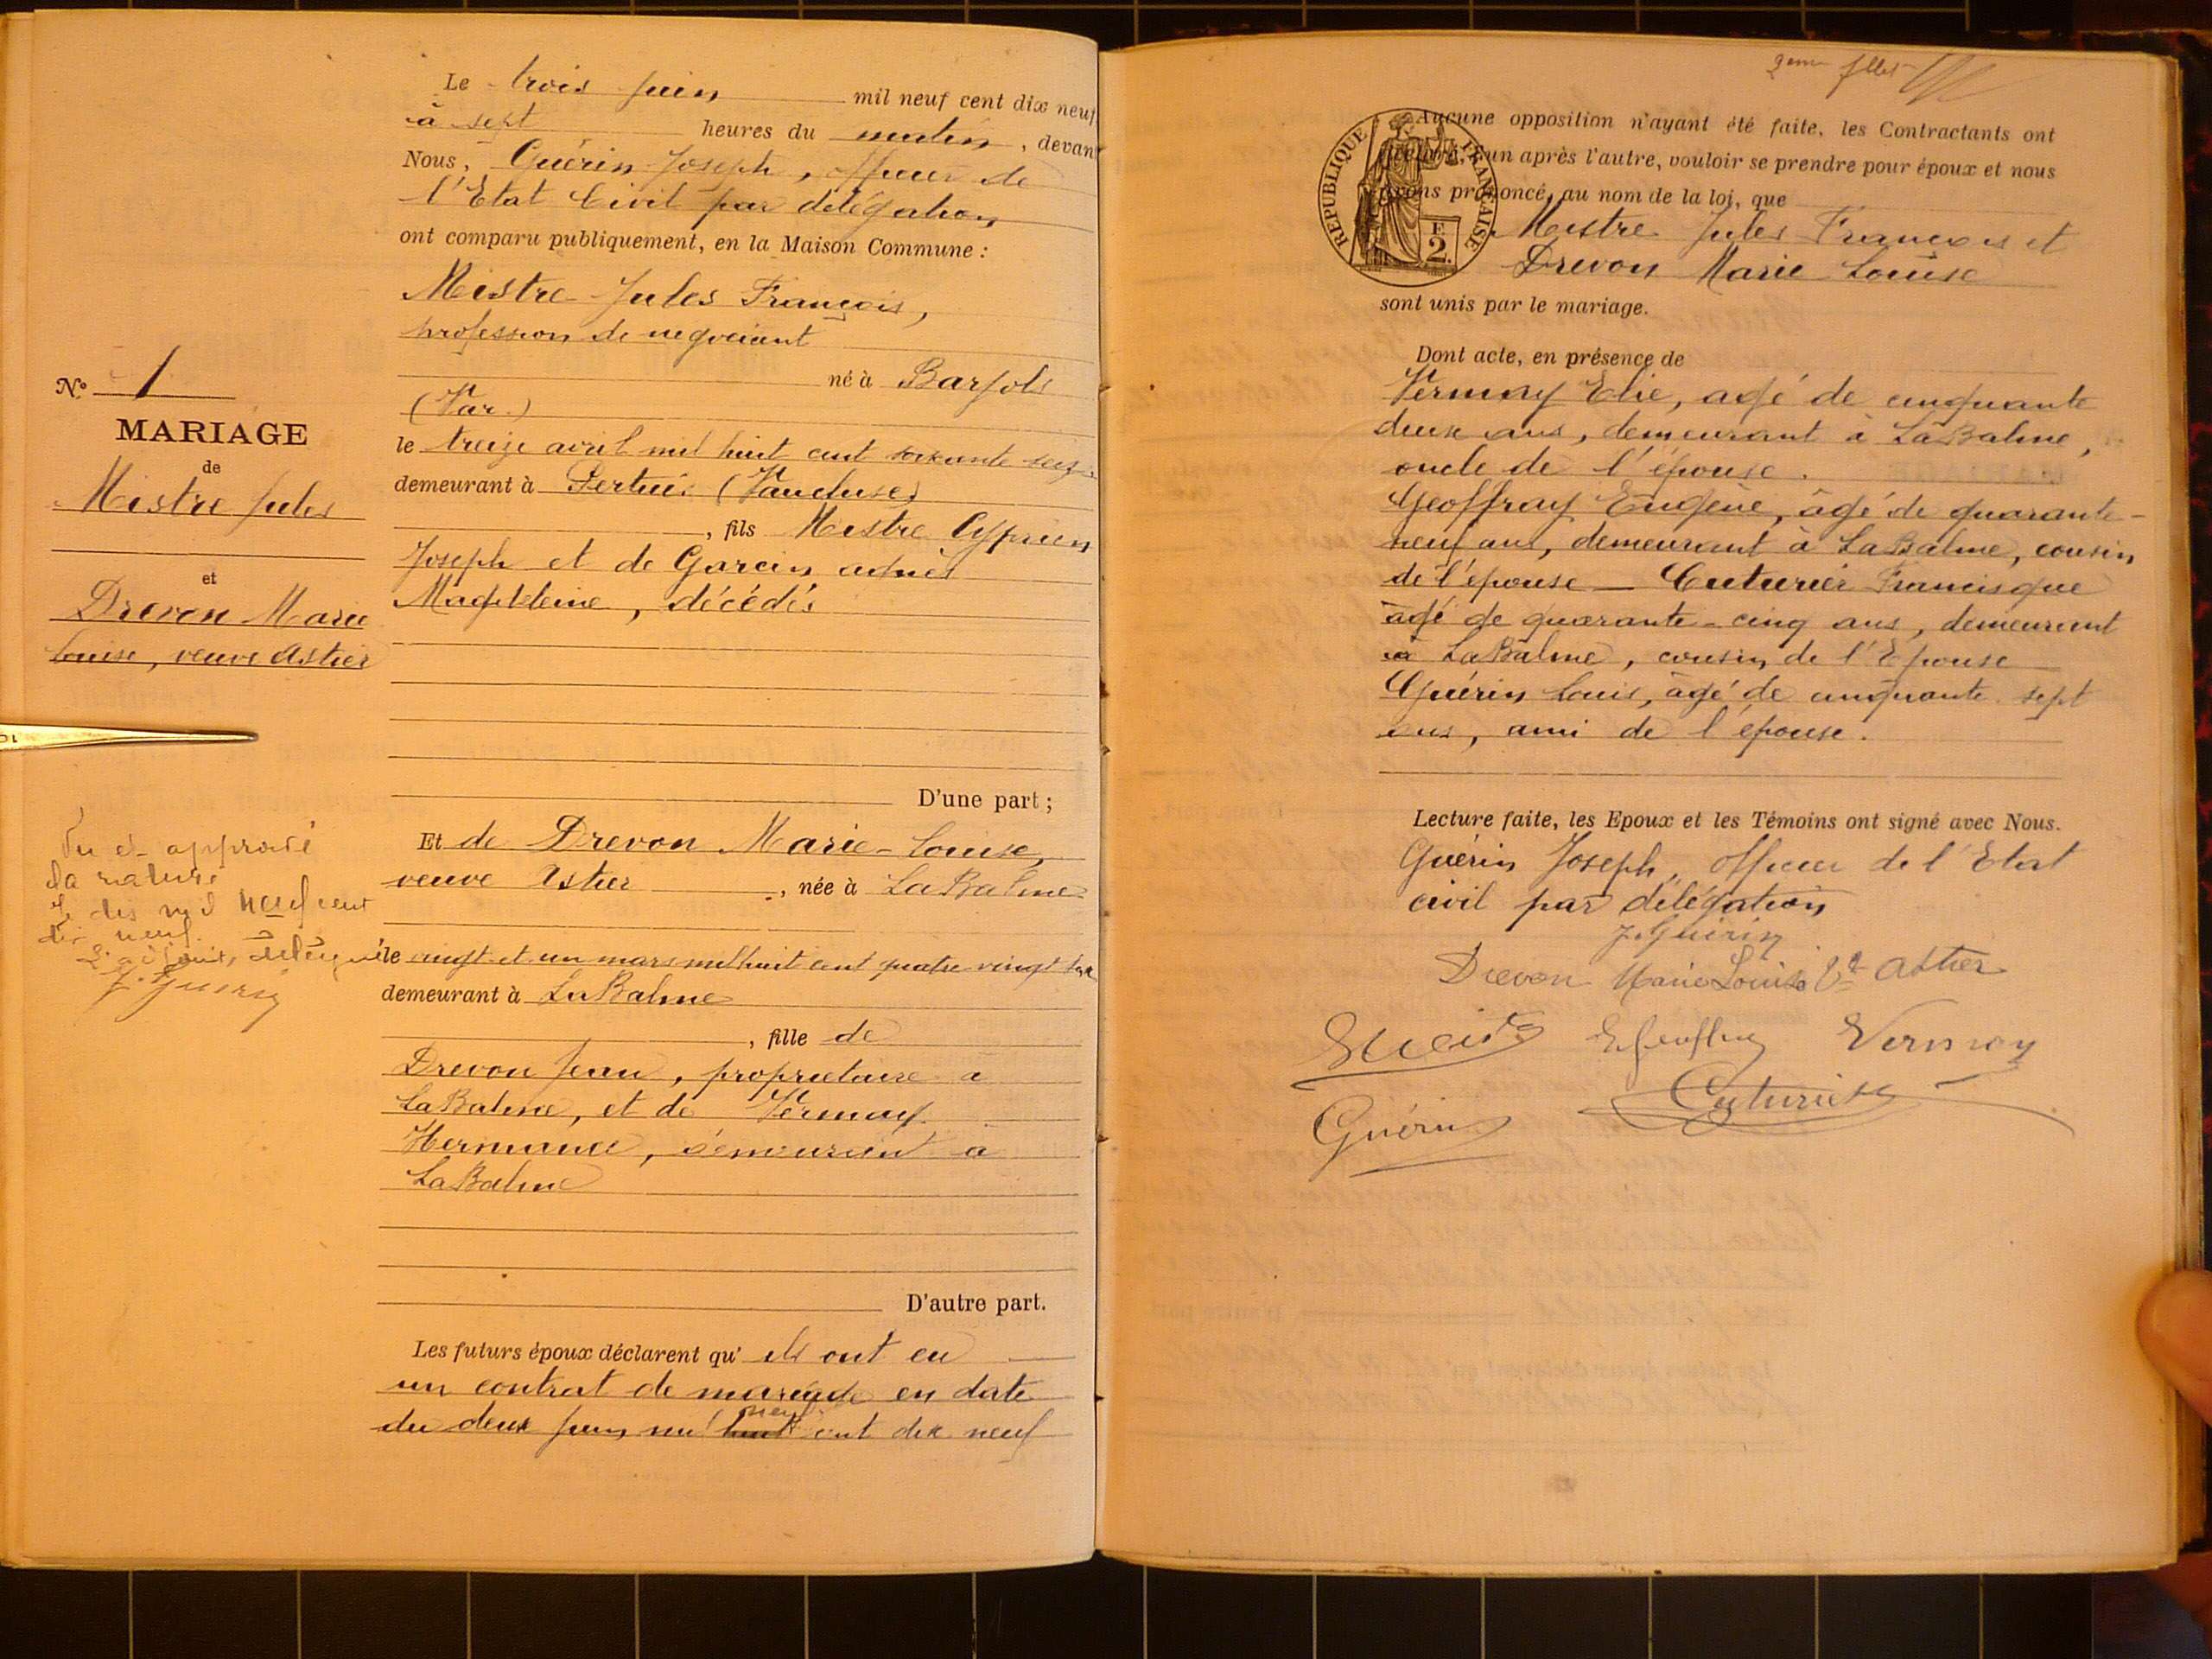 Le trois juin mil neuf cent dix neuf
à sept heures du matin, devant
Nous, Guérin Joseph, officier de
l'Etat Civil par délégation
ont comparu publiquement, en la Maison Commune :
Meistre Jules François,
profession de negociant
né à Barjols
(Var)
le treize avril mil huit cent soixante seize
demeurant à Pertuis (Vaucluse)
, fils Mestre Cyprien
Joseph et de Garcin
Magdeleine, décédés
D'une part ;
Et de Drevon Marie-Louise,
veuve Astier, née à La Balme
le vingt et un mars mil huit cent quatre vingt
demeurant à La Balme
, fille de
Drevon Jean, propriétaire a
La Balme, et de Vermay
Hermance, demeurant a
La Balme
D'autre part.
Les futurs époux déclarent qu'ils ont eu
un contrat de mariage en date
du deux juin mil huit neuf cent dix neuf
N° 1
MARIAGE
de
Mistre Jules
et
Drevon Marie
Louise, veuve Astier
Vu et approuvé
la rature
dis mil neuf cent
dix neuf.
L'adjoint délégué
J. Guérin
2eme fllet
Aucune opposition n'ayant été faite, les Contractants ont
déclaré, l'un après l'autre, vouloir se prendre pour époux et nous
avons prononcé, au nom de la loi, que
Mestre Jules François et
Drevon Marie Louise
sont unis par le mariage.
REPUBLIQUE FRANÇAISE
F.
2.
Dont acte, en présence de
Vermay Elie, agé de cinquante
deux ans, demeurant à La Balme,
oncle de l'épouse.
Geoffray Eugène, âgé de quarante-
neuf ans, demeurant à La Balme, cousin
de l'épouse — Cuturier Francisque
âgé de quarante-cinq ans, demeurant
à La Balme, cousin de l'Epouse
Guérin Louis, âgé de cinquante sept
ans, ami de l'épouse.
Lecture faite, les Epoux et les Témoins ont signé avec Nous.
Guérin Joseph, officier de l'Etat
civil par délégation
J. Guérin
Drevon Marie Louise Ve Astier
E Geoffray Vernay
Guérin Cuturier